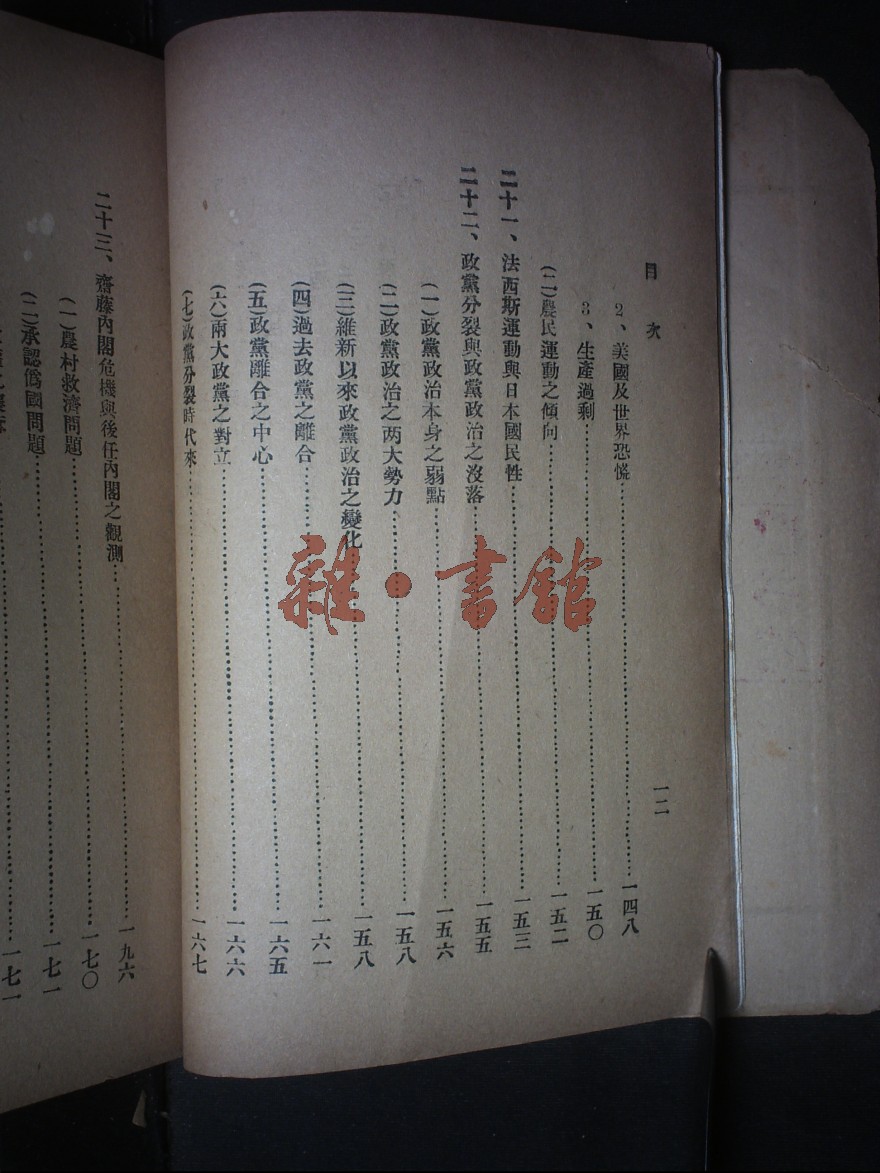 目次
一二
2、美國及世界恐慌……一四八
3、生產過剩……一五〇
(二)農民運動之傾向……一五二
二十一、法西斯運動與日本國民性……一五三
二十二、政黨分裂與政黨政治之沒落……一五五
(一)政黨政治本身之弱點……一五六
(二)政黨政治之两大勢力……一五八
(三)維新以來政黨政治之變化……一五八
(四)過去政黨之離合……一六一
(五)政黨離合之中心……一六五
(六)兩大政黨之對立……一六六
(七)政黨分裂時代來……一六七
二十三、齋藤內閣危機與後任內閣之觀測……一九六
(一)農村救濟問題……一七〇
(二)承認僞國問題……一七一
一七一
雜·書館